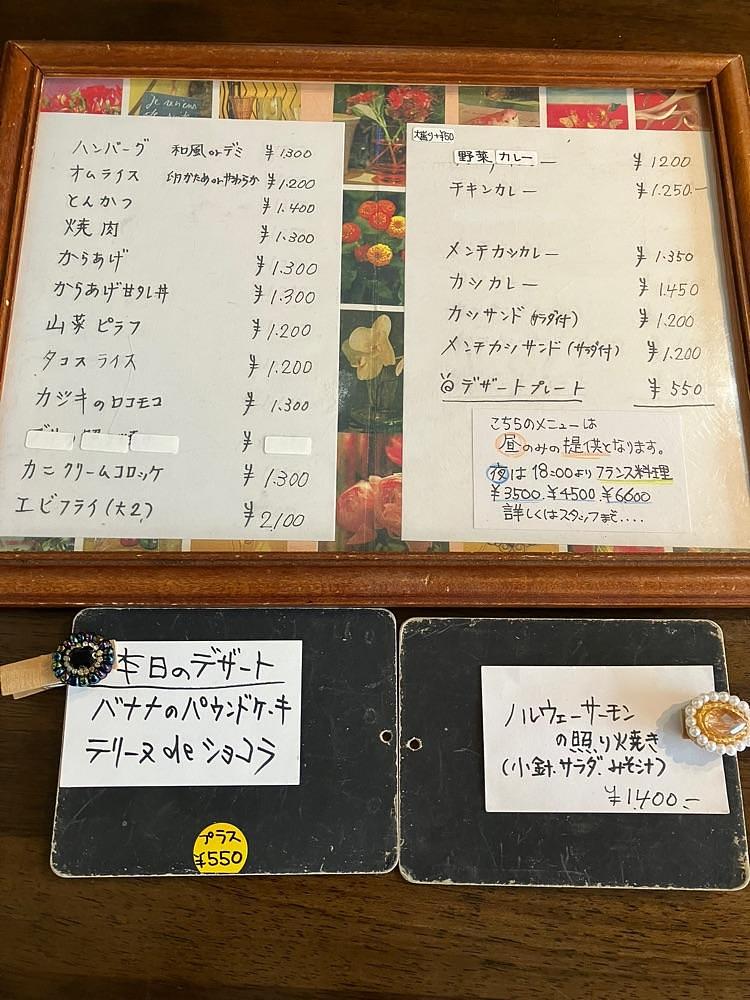 ハンバーグ 和風orデミ ¥1300
オムライス 卵かためorやわらか ¥1.200
とんかつ ¥1.400
焼肉 ¥1.300
からあげ ¥1.300
からあげ甘タレ丼 ¥1.300
山菜ピラフ ¥1.200
タコスライス ¥1.200
カジキのロコモコ ¥1.300
¥
カニクリームコロッケ ¥1.300
エビフライ(大2) ¥2,100
大盛り+¥50
野菜カレー ¥1200
チキンカレー ¥1.250-
メンチカツカレー ¥1.350
カツカレー ¥1.450
カツサンド(サラダ付) ¥1.200
メンチカツサンド(サラダ付) ¥1.200
デザートプレート ¥550
こちらのメニューは
昼のみの提供となります。
夜は18:00よりフランス料理
¥3500.¥4500.¥6600
詳しくはスタッフまで....
本日のデザート
バナナのパウンドケーキ
テリーヌdeショコラ
プラス
¥550
ノルウェーサーモン
の照り焼き
(小鉢.サラダ.みそ汁)
¥1.400-